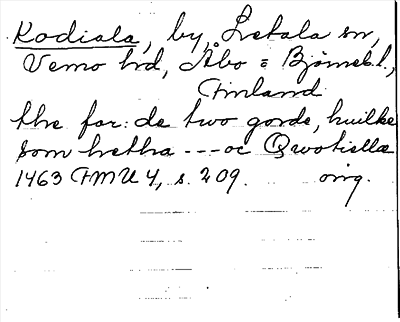 Kodiala, by, Letala sn,
Vemo hd, Åbo o Björneb. l.,
Finland
the før: de two gorde, huilke
som hetha --- oc Qwotiella
1463 FMU 4, s. 209. orig.